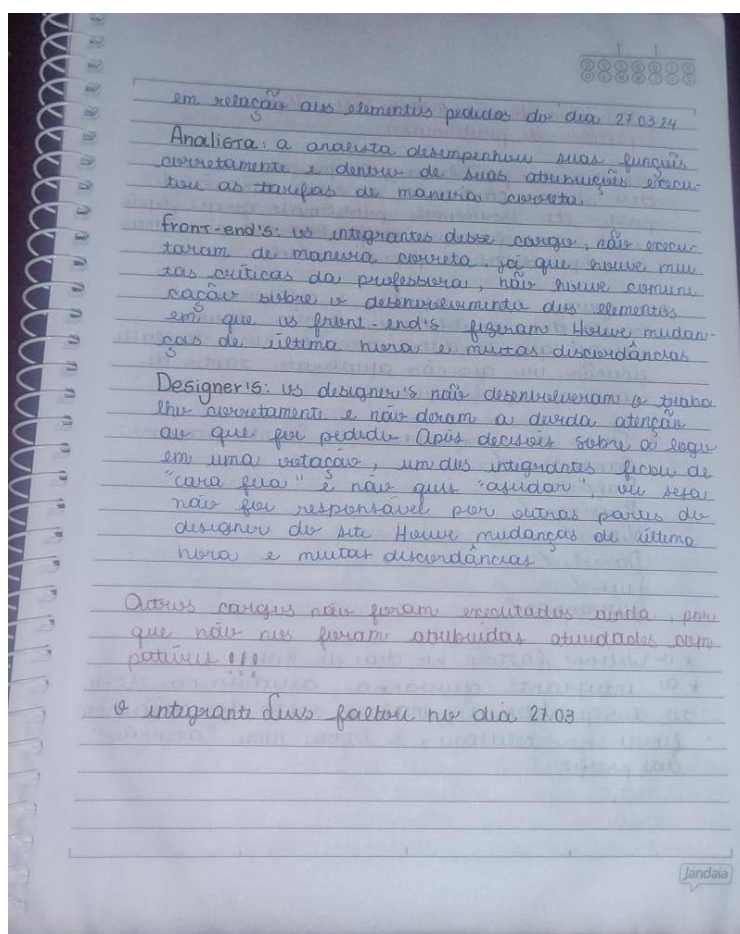 em relação aos elementos pedidos do dia 27.03.24
Analista: a analista desempenhou suas funções
corretamente e dentro de suas atribuições execu-
tou as tarefas de maneira correta.
front-end's: os integrantes desse cargo, não execu
taram de maneira correta, já que houve mui
tas críticas da professora, não houve comuni
cação sobre o desenvolvimento dos elementos
em que os front-end's fizeram Houve mudan-
ças de última hora e muitas discordâncias
Designer's: os designer's não desenvolveram o traba
lho corretamente e não deram a devida atenção
ao que foi pedido. Após decisões sobre a logo
em uma votação, um dos integrantes ficou de
"cara feia" e não quis "ajudar", ou seja
não foi responsável por outras partes do
designer do site Houve mudanças de última
hora e muitas discordâncias
Outros cargos não foram executados ainda, por
que não nos foram atribuídas atividades com
patíveis !!!
O integrante Luis faltou no dia 27.03
Jandaia